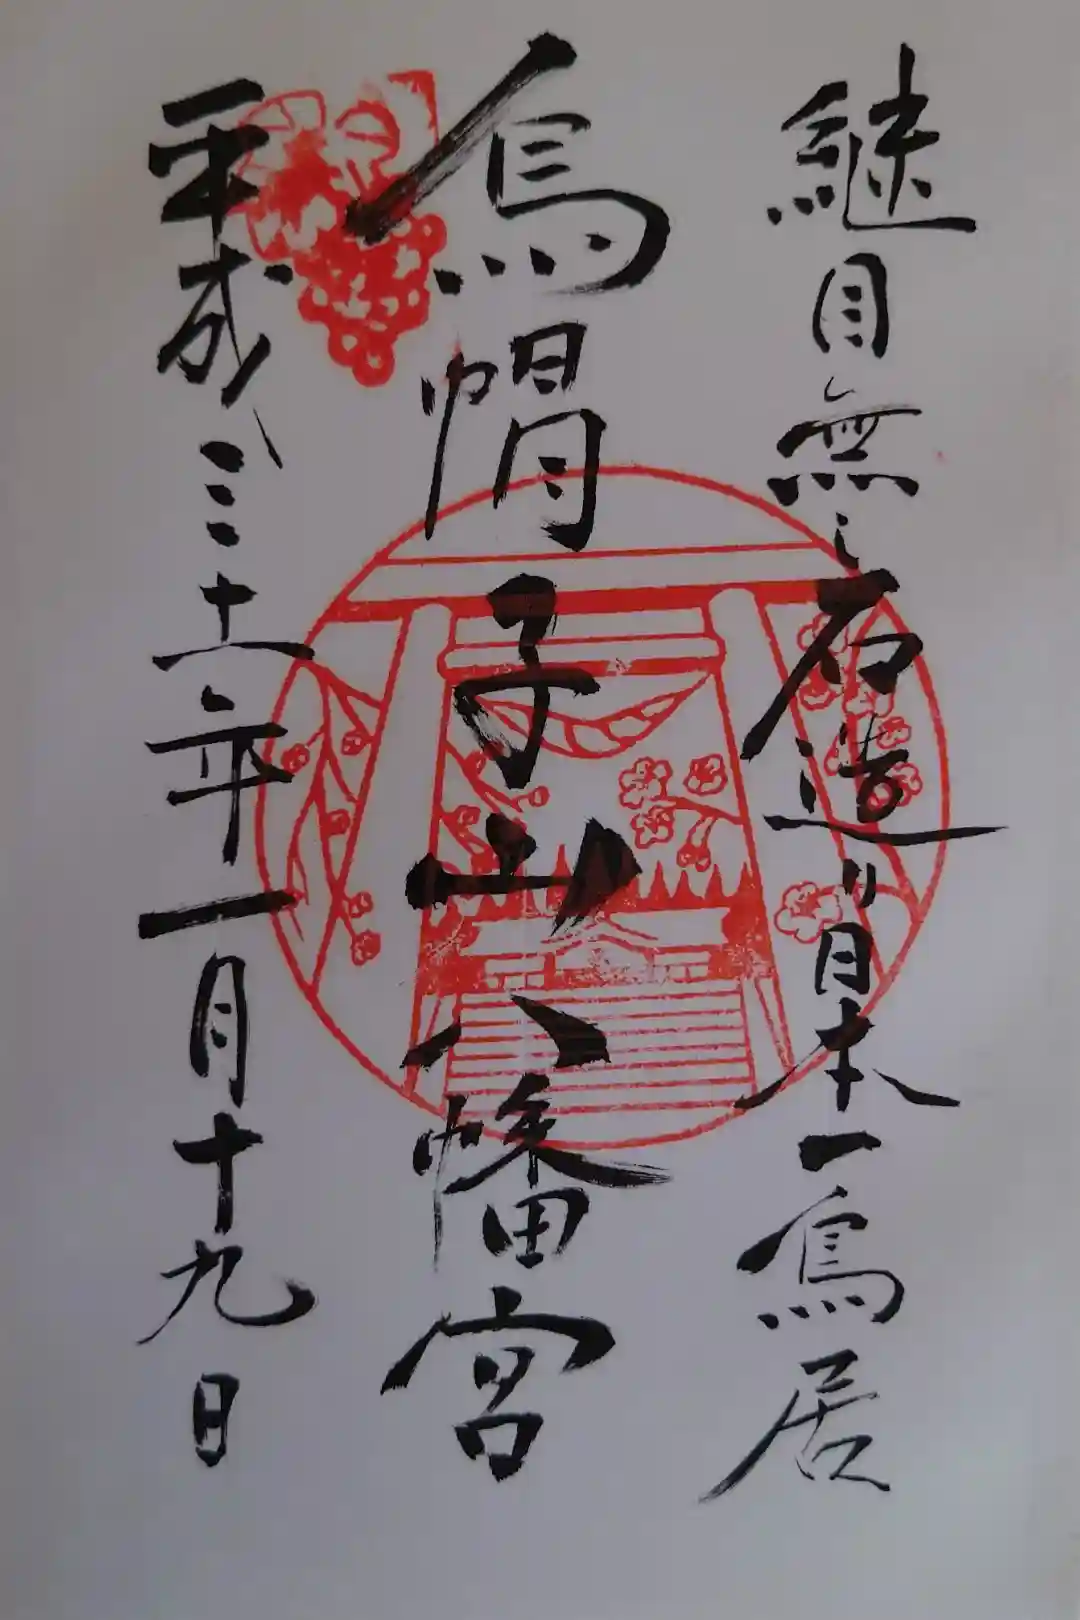 継目無し石造り日本一鳥居
烏帽子山八幡宮
平成三十一年一月十九日